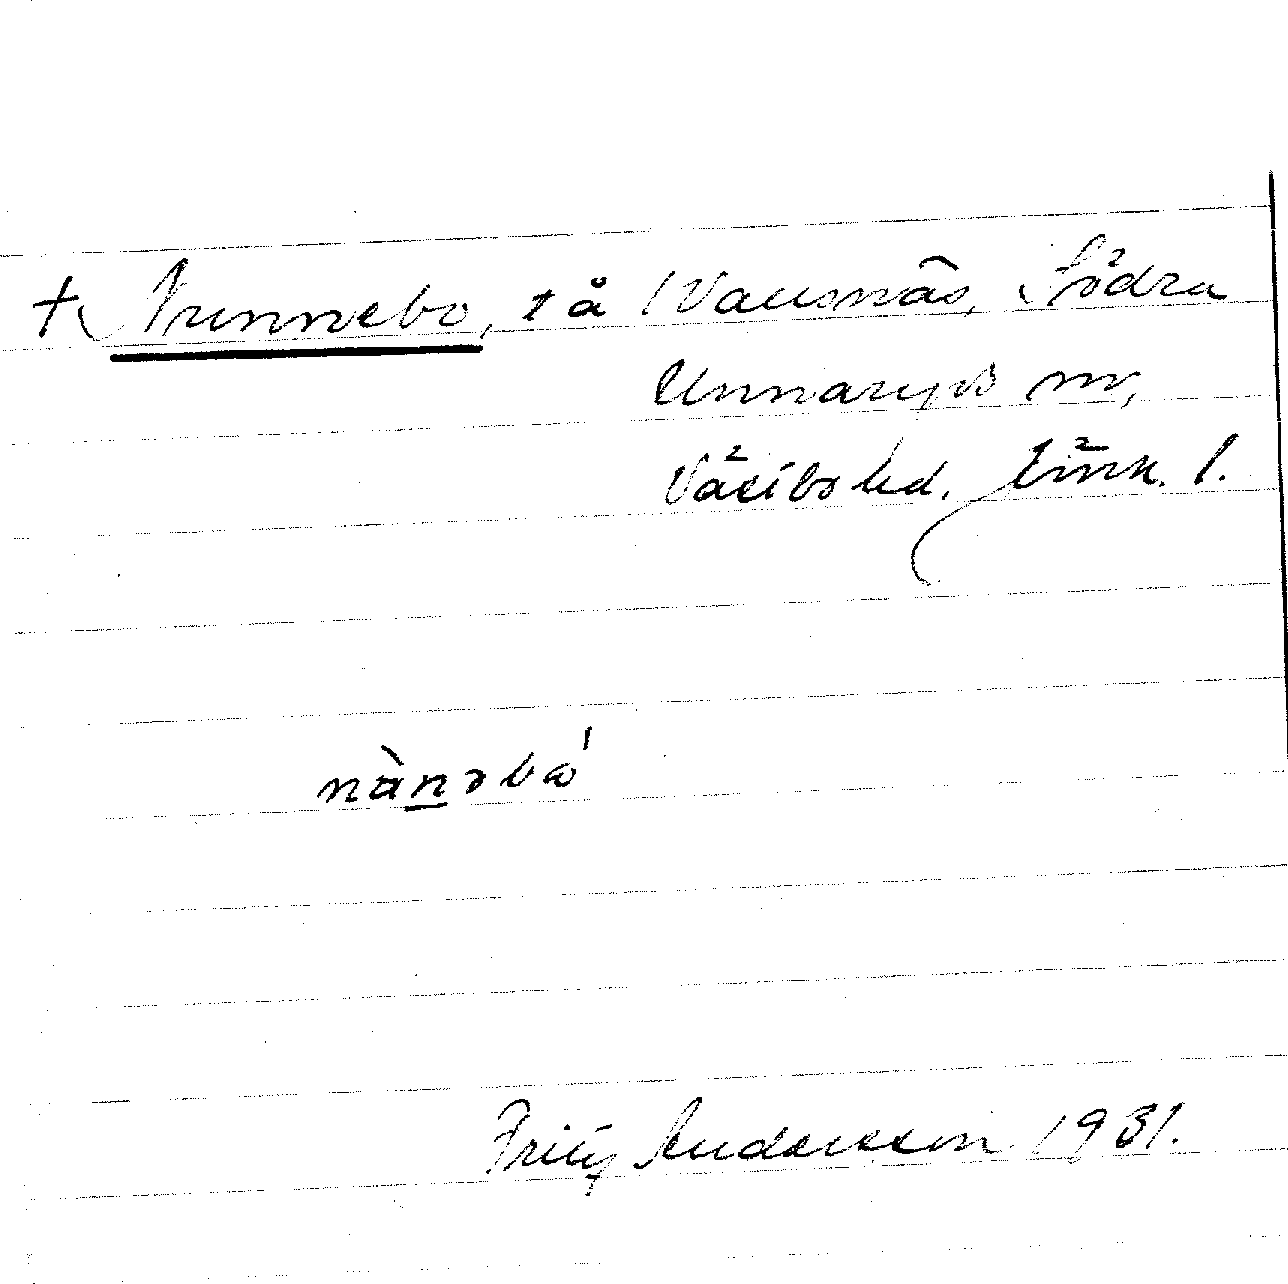 + Nunnebo, t å Vallsnäs, Södra
Unnaryds sn,
Västbo hd, Jönk. l.
nànəbω'
Fritz Andersson 1931.